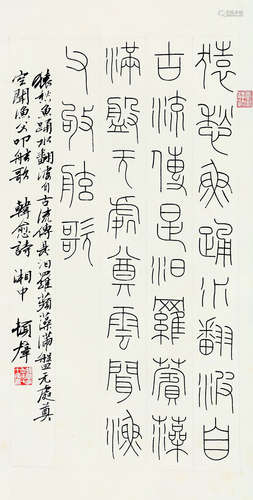 猿愁魚踊水翻波自
古流傳是汨羅蘋藻
滿盤无處奠空聞漁
父敂舷歌
猿愁魚踊水翻波自古流傳是汨羅蘋藻滿盤无處奠
空聞漁父叩舷歌 韓愈詩 湘中